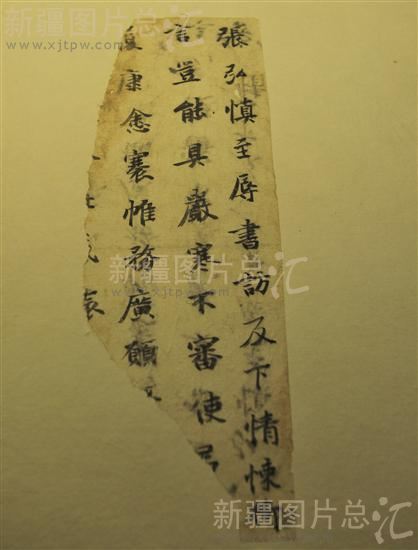 張弘慎至辱書訪及下情悚
言豈能具嚴寒不審使
康愈褰帷務廣願
新疆图片总汇
www.xjtpw.com
新疆图片总汇
www.xjtpw.com
新疆图片总汇
www.xjtpw.com